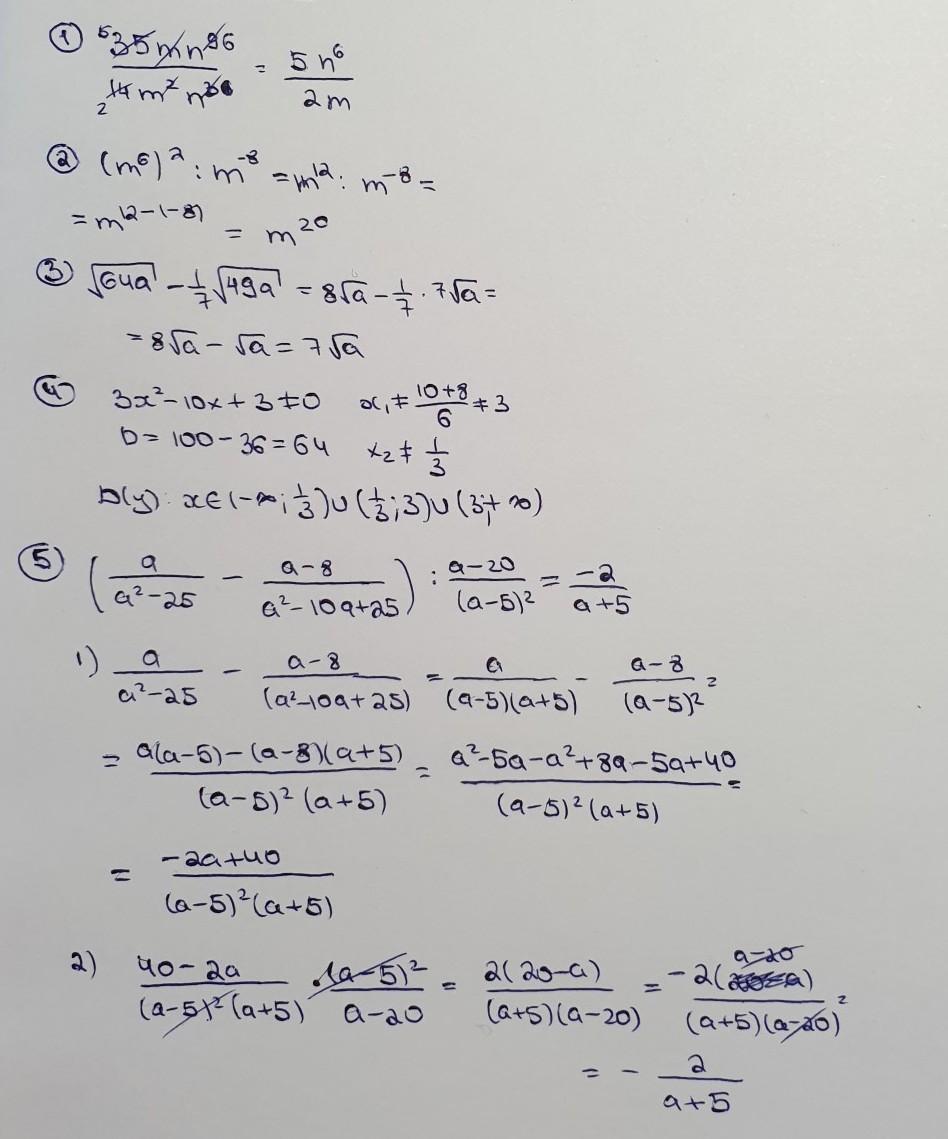 ① ⁵35mn⁹⁶ / ₂14m²n³⁶ = 5n⁶ / 2m
② (m⁶)² : m⁻⁸ = m¹² : m⁻⁸ =
= m¹²⁻⁽⁻⁸⁾ = m²⁰
③ √64a - 1/7 √49a = 8√a - 1/7 · 7√a =
= 8√a - √a = 7√a
④ 3x² - 10x + 3 ≠ 0 x₁ ≠ 10+8 / 6 ≠ 3
D = 100 - 36 = 64 x₂ ≠ 1/3
D(y): x ∈ (-∞; 1/3) ∪ (1/3; 3) ∪ (3; +∞)
⑤ (a / a²-25 - a-8 / a²-10a+25) : a-20 / (a-5)² = -2 / a+5
1) a / a²-25 - a-8 / (a²-10a+25) = a / (a-5)(a+5) - a-8 / (a-5)² =
= a(a-5)-(a-8)(a+5) / (a-5)²(a+5) = a²-5a-a²+8a-5a+40 / (a-5)²(a+5) =
= -2a+40 / (a-5)²(a+5)
2) 40-2a / (a-5)²(a+5) · (a-5)² / a-20 = 2(20-a) / (a+5)(a-20) = -2(a-20) / (a+5)(a-20) =
= - 2 / a+5